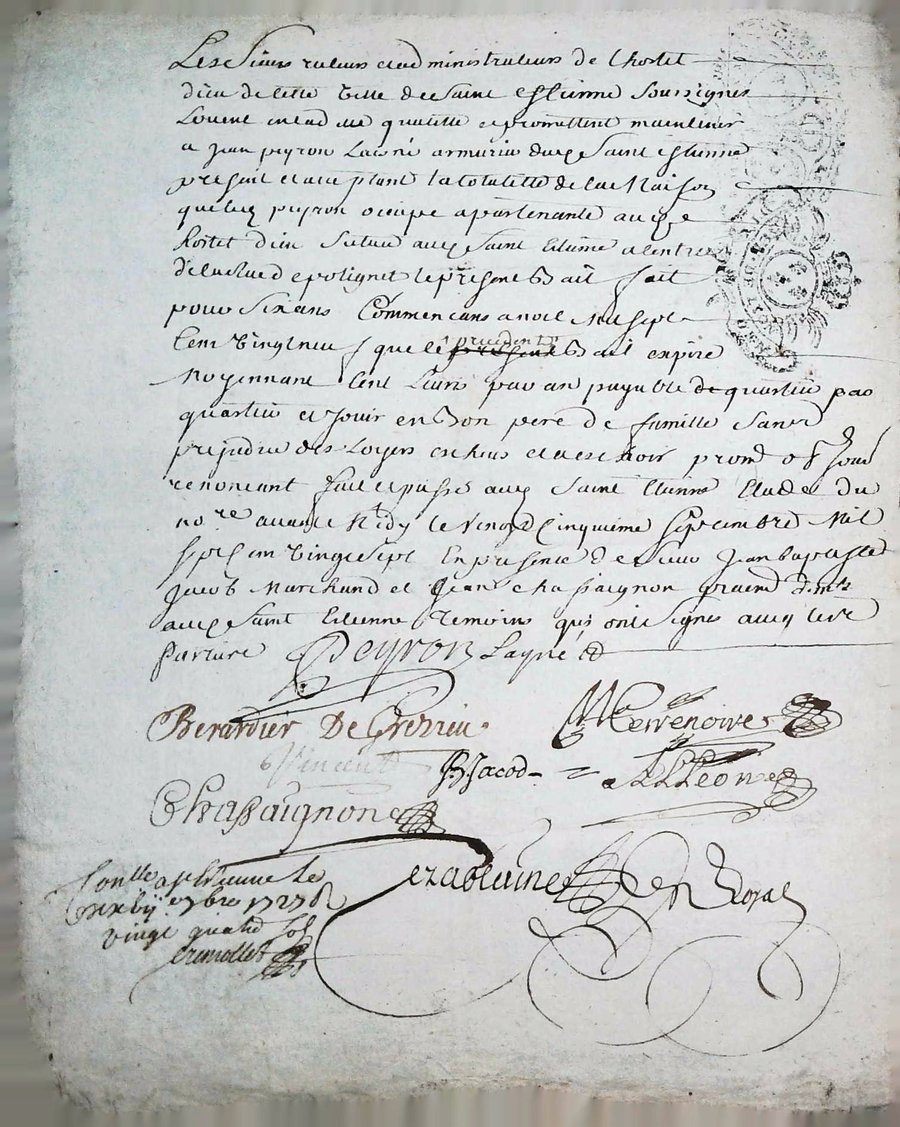 Les Sieurs recteurs et administrateurs de Lhostel
dieu de cette Ville de Saint estienne Soussignes
Louent en lad ite qualitte et promettent maintenir
a Jean peyron Layné armurier dud Saint estienne
present et acceptant la totalitte de la Maison
que led peyron occupe apartenante aud
hostel dieu Scitue aud Saint Etienne a lentree
de la Rue de polignet le present Bail fait
pour Six ans Commencans a noel Mil sept
Cent Vingt neuf que le precedent Bail expire
Moyennant Cent Livres par an payable de quartier par
quartier et Jouir en Bon pere de famille Sans
prejudice des Loyers escheus et a escheoir prom
renoncant fait et passé aud Saint Etienne Etude du
nore avant Midy le Vingt Cinquieme Septembre Mil
Sept Cent Vingt Sept En presence de Sieur Jean baptiste
Jacod Marchand et Jean chassaignon praend dmts
aud Saint Etienne temoins qui ont Signes avec les
parties
Peyron Layné
Berardier De Grezieu
Terrenoire
Vincent
JB Jacod
Leon
Chassaignon
Ezablaine
Royal
Conlle a st Etienne le
7bre 1727
vingt quatre sols